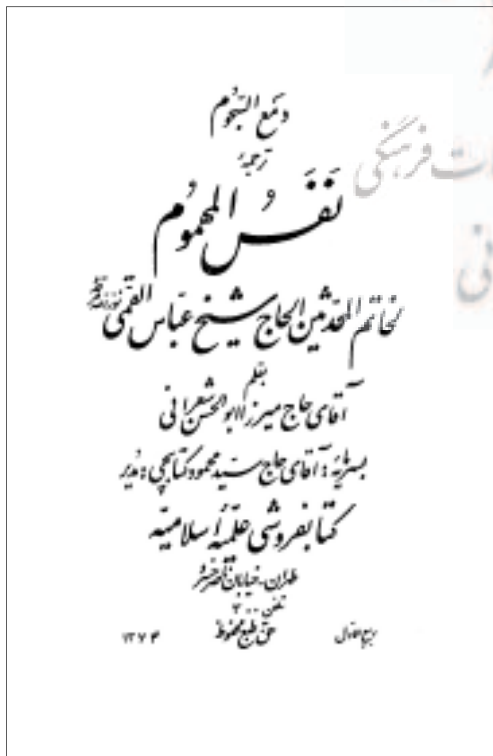 دمع السجوم
ترجمهٔ
نَفَسُ المهموُم
لخاتم المحدثین الحاج شیخ عباس القمی
بقلم
آقای حاج میرزا ابوالحسن شعرانی
بسرمایهٔ : آقای حاج سید محمود کتابچی : مدیر
کتابفروشی علمیهٔ اسلامیه
طهران - خیابان ناصرخسرو
تلفن
ربیع الاول حق طبع محفوظ ۱۳۷۴
ات فرهنگی
نی